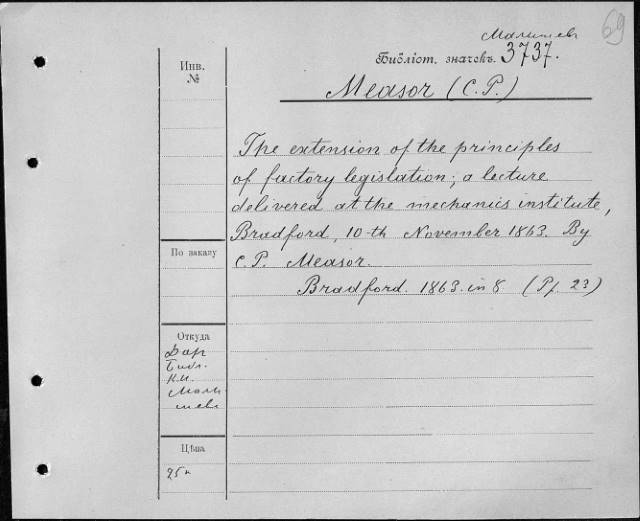 69
Малышев
Библіот. значекъ. 3737.
Measor (C.P.)
Инв.
№
The extension of the principles
of factory legislation; a lecture
delivered at the mechanics institute,
Bradford, 10-th November 1863. By
C.P. Measor.
Bradford. 1863. in 8 (Pf. 23)
По заказу
Откуда
Дар
Библ.
К.И.
Малы
шева
Цѣна
25к